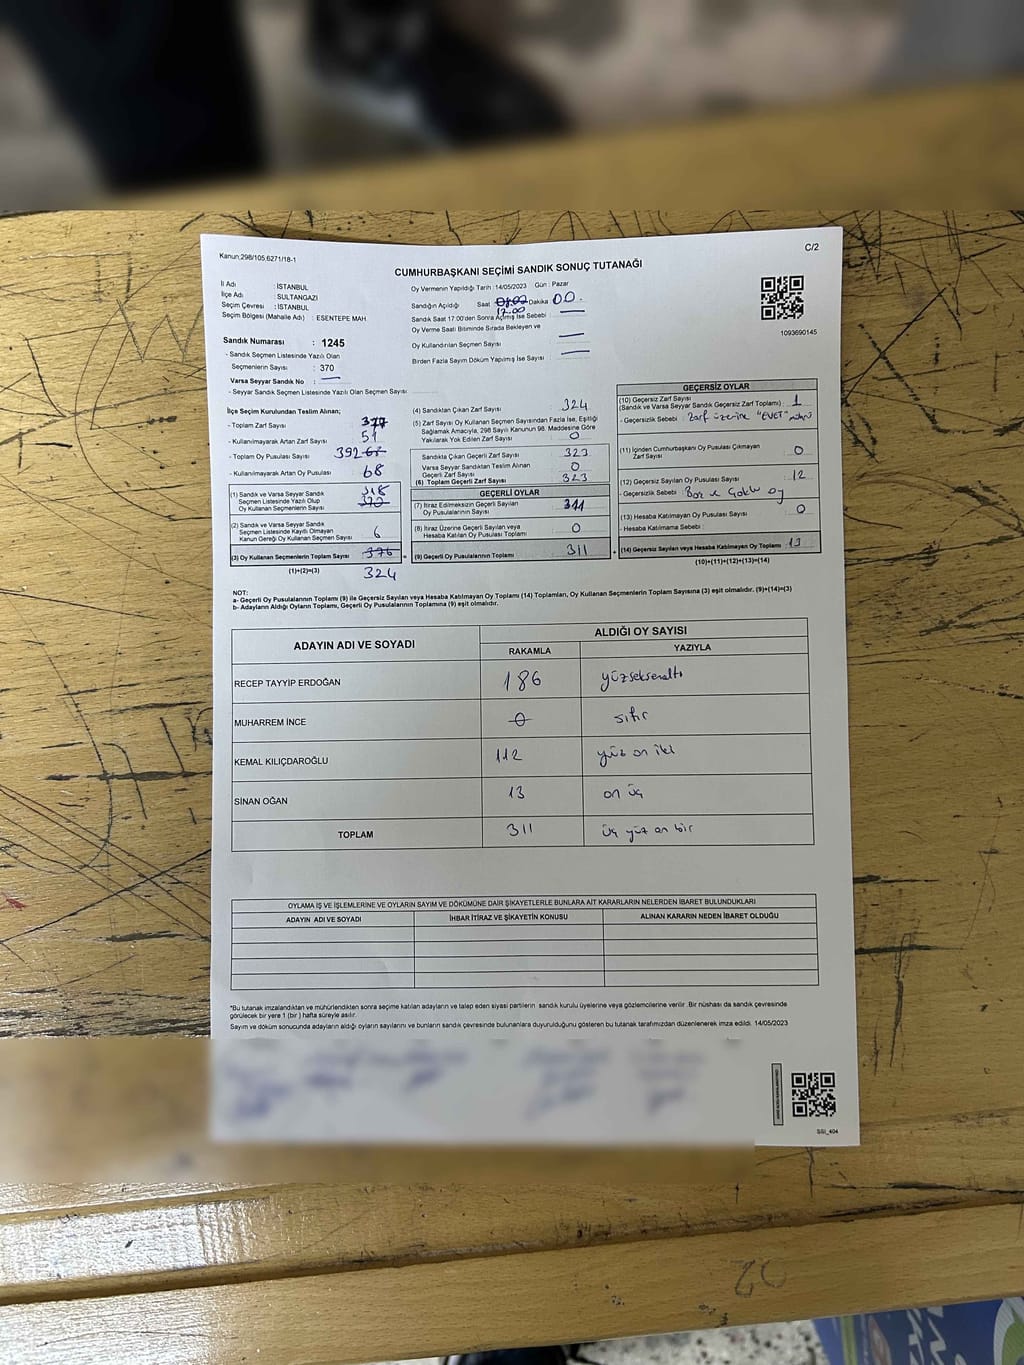 Kanun;298/105,6271/18-1
C/2
CUMHURBAŞKANI SEÇİMİ SANDIK SONUÇ TUTANAĞI
İl Adı : İSTANBUL
İlçe Adı : SULTANGAZİ
Seçim Çevresi : İSTANBUL
Seçim Bölgesi (Mahalle Adı) : ESENTEPE MAH
Sandık Numarası : 1245
- Sandık Seçmen Listesinde Yazılı Olan
Seçmenlerin Sayısı : 370
Varsa Seyyar Sandık No :
- Seyyar Sandık Seçmen Listesinde Yazılı Olan Seçmen Sayısı:
Oy Vermenin Yapıldığı Tarih :14/05/2023 Gün : Pazar
Sandığın Açıldığı Saat 17.00 Dakika 00.
Sandık Saat 17:00'den Sonra Açılmış İse Sebebi :
Oy Verme Saati Bitiminde Sırada Bekleyen ve
Oy Kullandırılan Seçmen Sayısı
Birden Fazla Sayım Döküm Yapılmış İse Sayısı :
1093690145
İlçe Seçim Kurulundan Teslim Alınan;
- Toplam Zarf Sayısı : 377
- Kullanılmayarak Artan Zarf Sayısı : 51
- Toplam Oy Pusulası Sayısı : 392
- Kullanılmayarak Artan Oy Pusulası : 68
(1) Sandık ve Varsa Seyyar Sandık
Seçmen Listesinde Yazılı Olup
Oy Kullanan Seçmenlerin Sayısı 318 370
(2) Sandık ve Varsa Seyyar Sandık
Seçmen Listesinde Kayıtlı Olmayan
Kanun Gereği Oy Kullanan Seçmen Sayısı 6
(3) Oy Kullanan Seçmenlerin Toplam Sayısı 376
(1)+(2)=(3) 324
(4) Sandıktan Çıkan Zarf Sayısı : 324
(5) Zarf Sayısı Oy Kullanan Seçmen Sayısından Fazla İse, Eşitliği
Sağlamak Amacıyla, 298 Sayılı Kanunun 98. Maddesine Göre
Yakılarak Yok Edilen Zarf Sayısı : 0
Sandıkta Çıkan Geçerli Zarf Sayısı : 323
Varsa Seyyar Sandıktan Teslim Alınan
Geçerli Zarf Sayısı : 0
(6) Toplam Geçerli Zarf Sayısı : 323
GEÇERLİ OYLAR
(7) İtiraz Edilmeksizin Geçerli Sayılan
Oy Pusulalarının Sayısı : 311
(8) İtiraz Üzerine Geçerli Sayılan veya
Hesaba Katılan Oy Pusulası Toplamı : 0
(9) Geçerli Oy Pusulalarının Toplamı : 311
GEÇERSİZ OYLAR
(10) Geçersiz Zarf Sayısı
(Sandık ve Varsa Seyyar Sandık Geçersiz Zarf Toplamı) : 1
- Geçersizlik Sebebi : Zarf üzerine "EVET"
(11) İçinden Cumhurbaşkanı Oy Pusulası Çıkmayan
Zarf Sayısı : 0
(12) Geçersiz Sayılan Oy Pusulası Sayısı : 12
- Geçersizlik Sebebi : Boş ve Çoklu oy
(13) Hesaba Katılmayan Oy Pusulası Sayısı : 0
- Hesaba Katılmama Sebebi :
(14) Geçersiz Sayılan veya Hesaba Katılmayan Oy Toplamı : 13
(10)+(11)+(12)+(13)=(14)
NOT:
a- Geçerli Oy Pusulalarının Toplamı (9) ile Geçersiz Sayılan veya Hesaba Katılmayan Oy Toplamı (14) Toplamları, Oy Kullanan Seçmenlerin Toplam Sayısına (3) eşit olmalıdır. (9)+(14)=(3)
b- Adayların Aldığı Oyların Toplamı, Geçerli Oy Pusulalarının Toplamına (9) eşit olmalıdır.
ADAYIN ADI VE SOYADI
ALDIĞI OY SAYISI
RAKAMLA YAZIYLA
RECEP TAYYİP ERDOĞAN 186 yüzseksenaltı
MUHARREM İNCE 0 sıfır
KEMAL KILIÇDAROĞLU 112 yüz on iki
SİNAN OĞAN 13 on üç
TOPLAM 311 üç yüz on bir
OYLAMA İŞ VE İŞLEMLERİNE VE OYLARIN SAYIM VE DÖKÜMÜNE DAİR ŞİKAYETLERLE BUNLARA AİT KARARLARIN NELERDEN İBARET BULUNDUKLARI
ADAYIN ADI VE SOYADI İHBAR İTİRAZ VE ŞİKAYETİN KONUSU ALINAN KARARIN NEDEN İBARET OLDUĞU
*Bu tutanak imzalandıktan ve mühürlendikten sonra seçime katılan adayların ve talep eden siyasi partilerin sandık kurulu üyelerine veya gözlemcilerine verilir. Bir nüshası da sandık çevresinde
görülecek bir yere 1 (bir) hafta süreyle asılır.
Sayım ve döküm sonucunda adayların aldığı oyların sayılarını ve bunların sandık çevresinde bulunanlara duyurulduğunu gösteren bu tutanak tarafımızdan düzenlenerek imza edildi. 14/05/2023
SSI_404